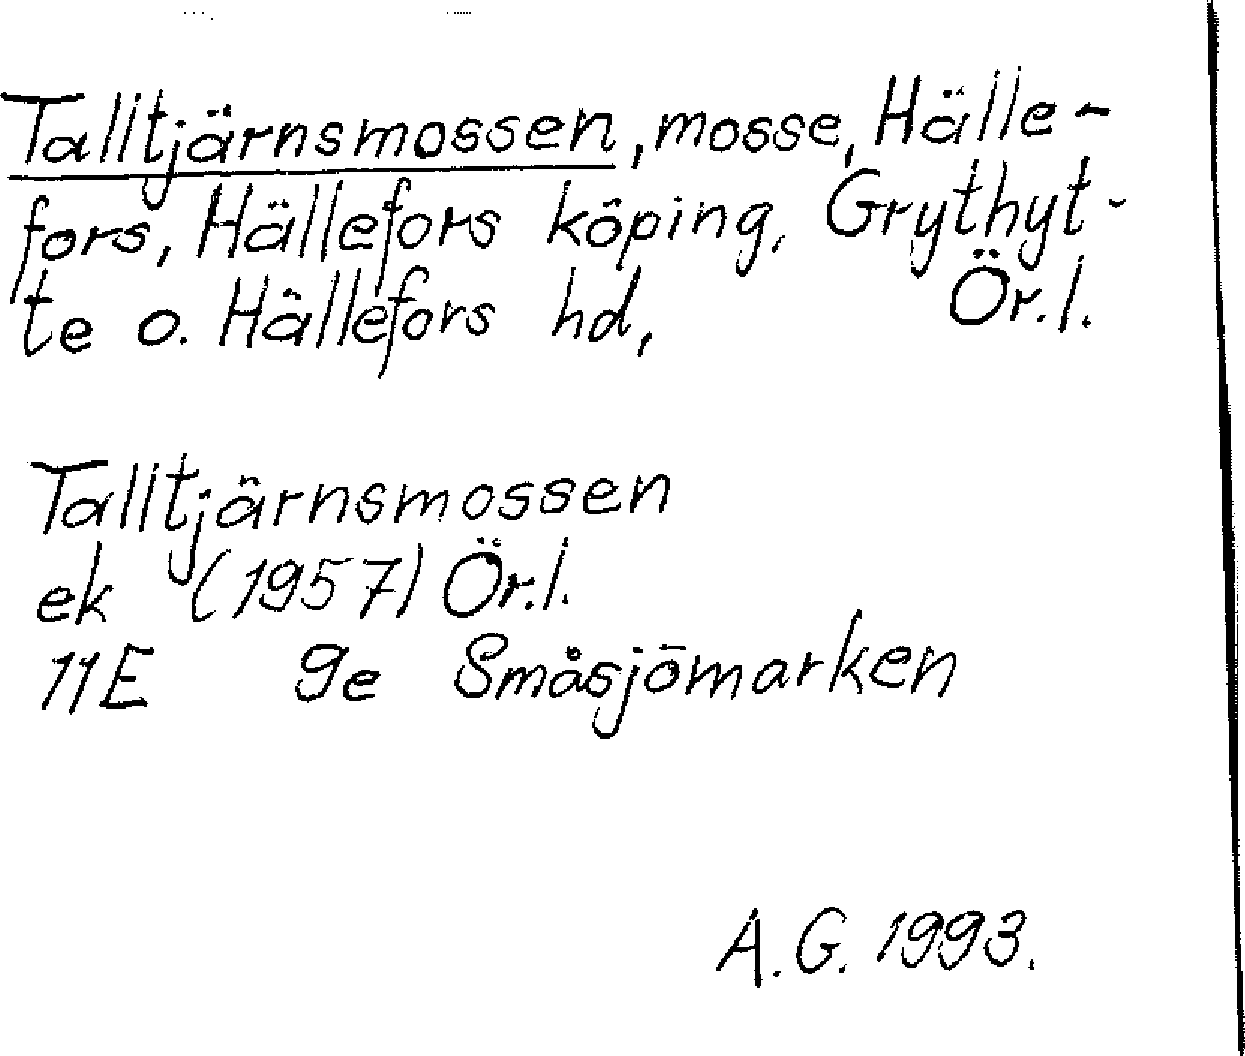 Talltjärnsmossen, mosse, Hälle-
fors, Hällefors köping, Grythyt-
te o. Hällefors hd, Ör.l.
Talltjärnsmossen
ek (1957) Ör.l.
11E 9e Småsjömarken
A.G. 1993.